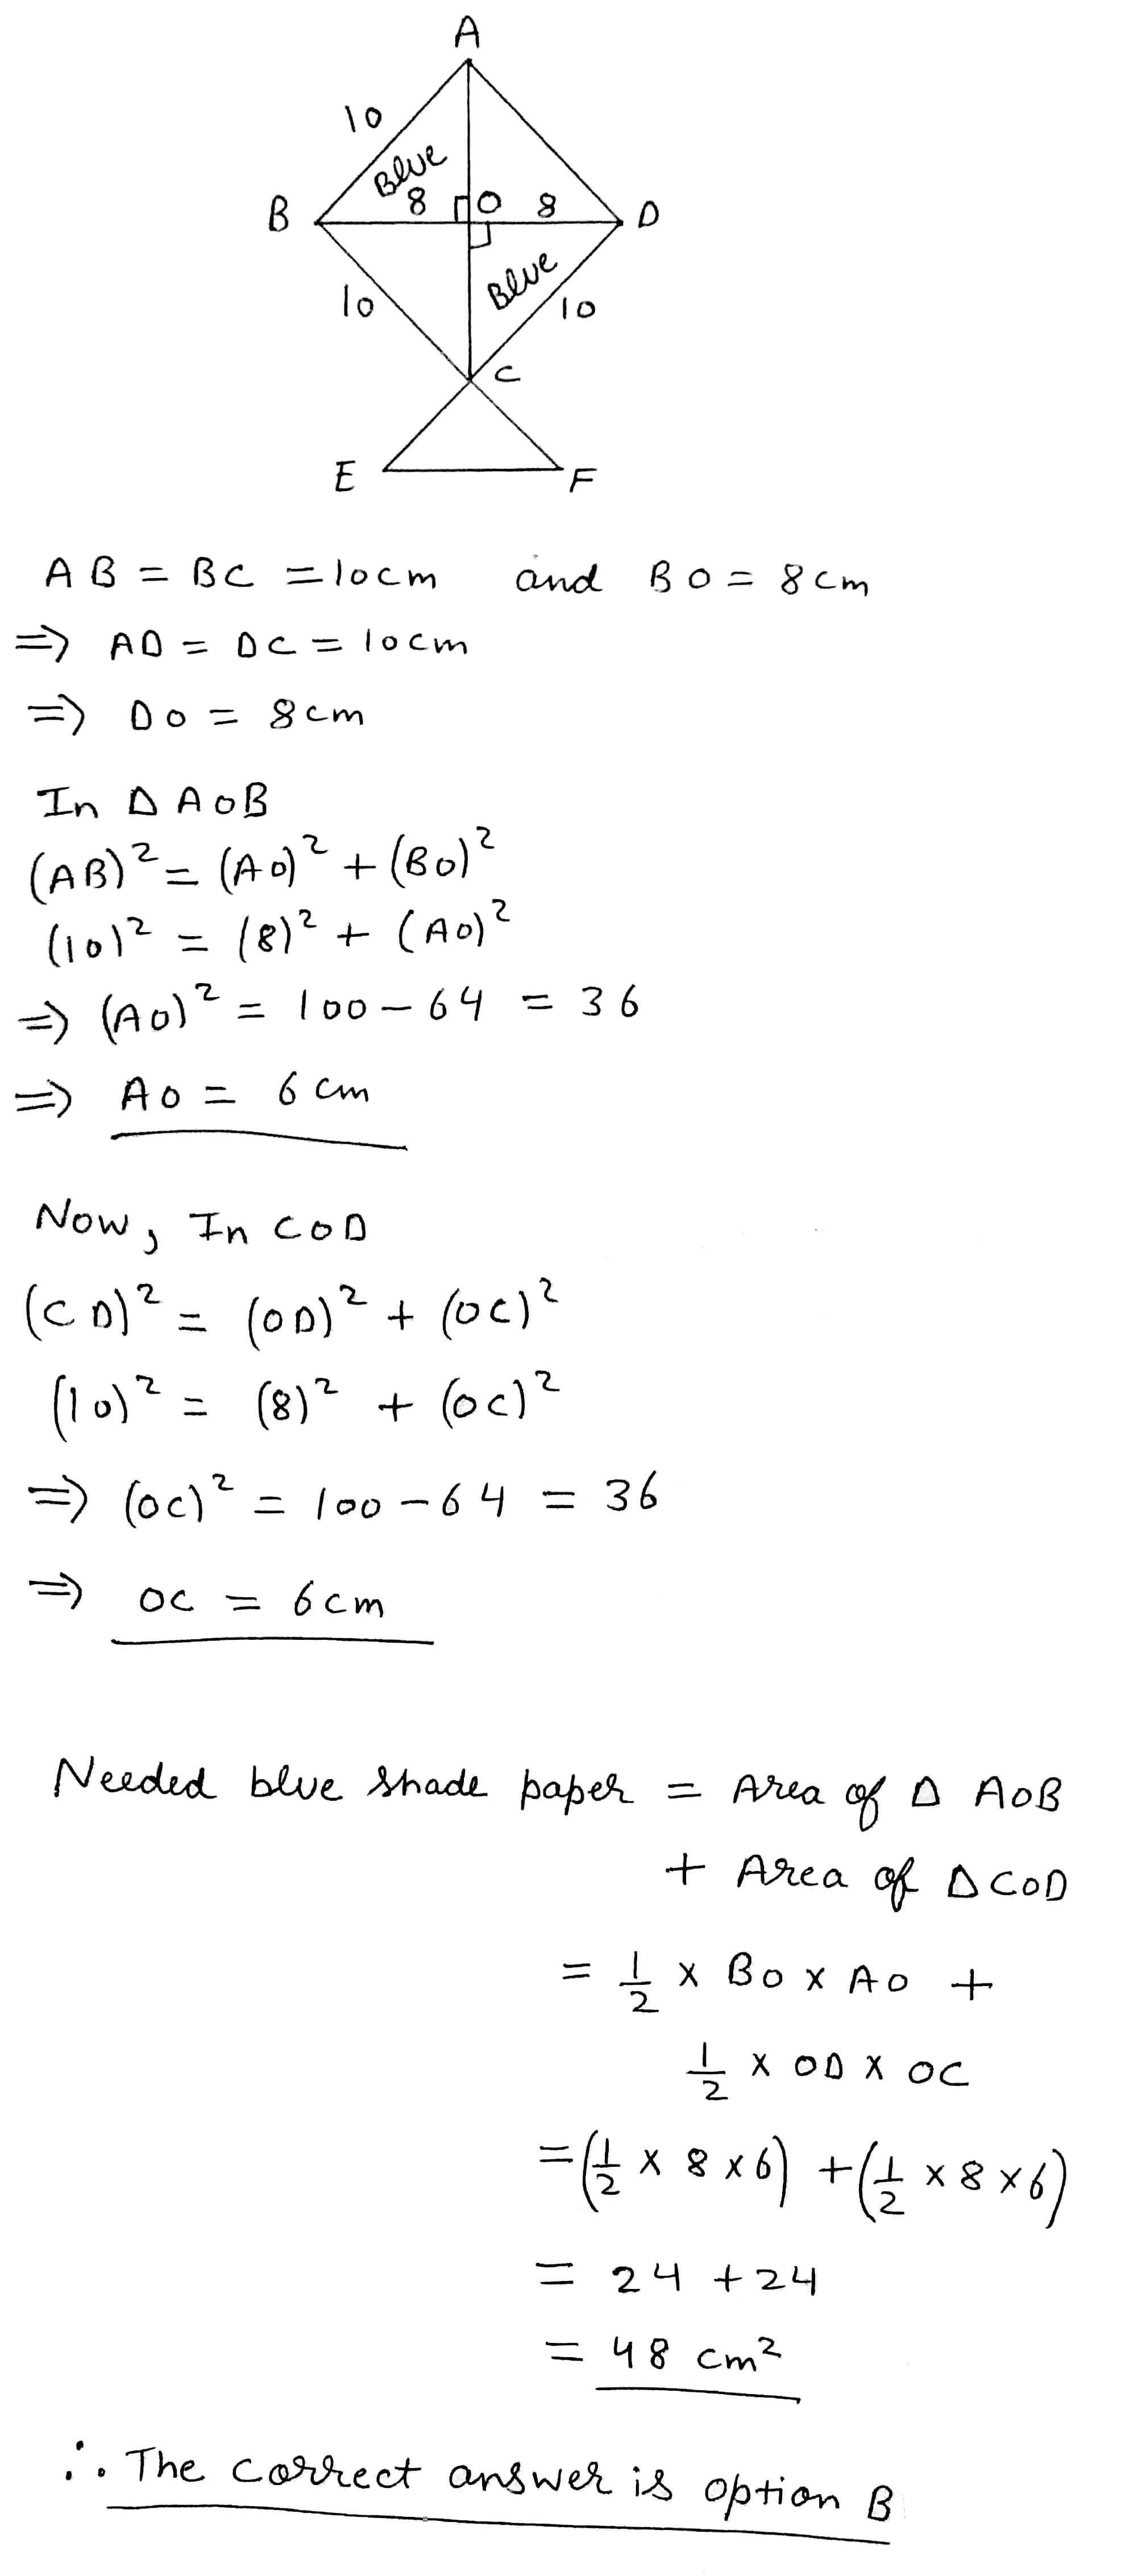 A
10
Blue
B 8 O 8 D
10 Blue 10
C
E F
AB = BC = 10cm and BO = 8cm
⇒ AD = DC = 10cm
⇒ DO = 8cm
In Δ AOB
(AB)² = (AO)² + (BO)²
(10)² = (8)² + (AO)²
⇒ (AO)² = 100 - 64 = 36
⇒ AO = 6 cm
Now, In COD
(CD)² = (OD)² + (OC)²
(10)² = (8)² + (OC)²
⇒ (OC)² = 100 - 64 = 36
⇒ OC = 6cm
Needed blue shade paper = Area of Δ AOB
+ Area of Δ COD
= 1/2 × BO × AO +
1/2 × OD × OC
= (1/2 × 8 × 6) + (1/2 × 8 × 6)
= 24 + 24
= 48 cm²
∴ The correct answer is option B